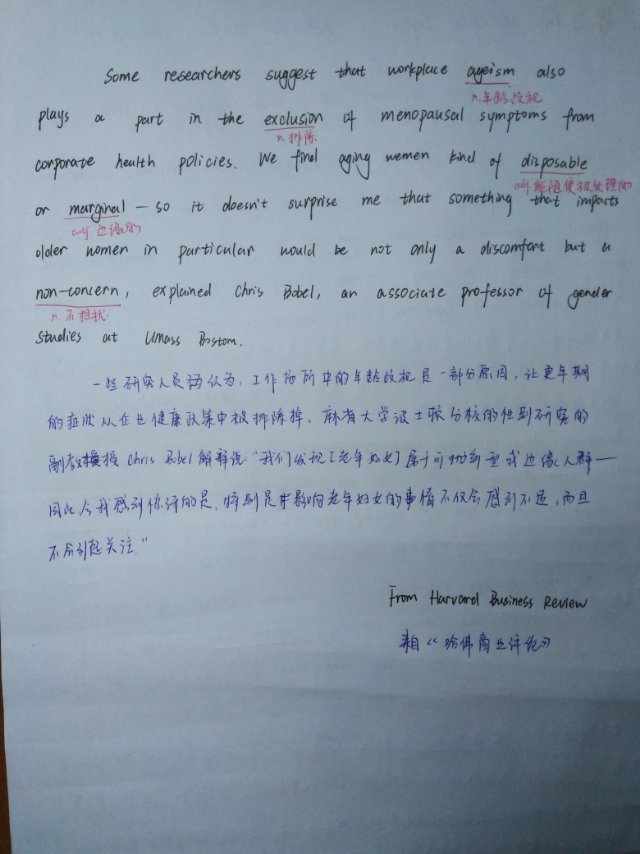 Some researchers suggest that workplace ageism also
n.年龄歧视
plays a part in the exclusion of menopausal symptoms from
n.排除
corporate health policies. We find aging women kind of disposable
adj.能随便被处理的
or marginal — so it doesn't surprise me that something that impacts
adj.边缘的
older women in particular would be not only a discomfort but a
non-concern, explained Chris Bobel, an associate professor of gender
n.不担忧
studies at Umass Boston.
一些研究人员认为,工作场所中的年龄歧视是一部分原因,让更年期
的症状从企业健康政策中被排除掉。麻省大学波士顿分校的性别研究的
副教授 Chris Bobel 解释说:"我们发现[老年妇女]属于可抛弃型或边缘人群——
因此令我感到惊讶的是,特别是影响老年妇女的事情不仅会感到不适,而且
不会引起关注。"
From Harvard Business Review
来自《哈佛商业评论》